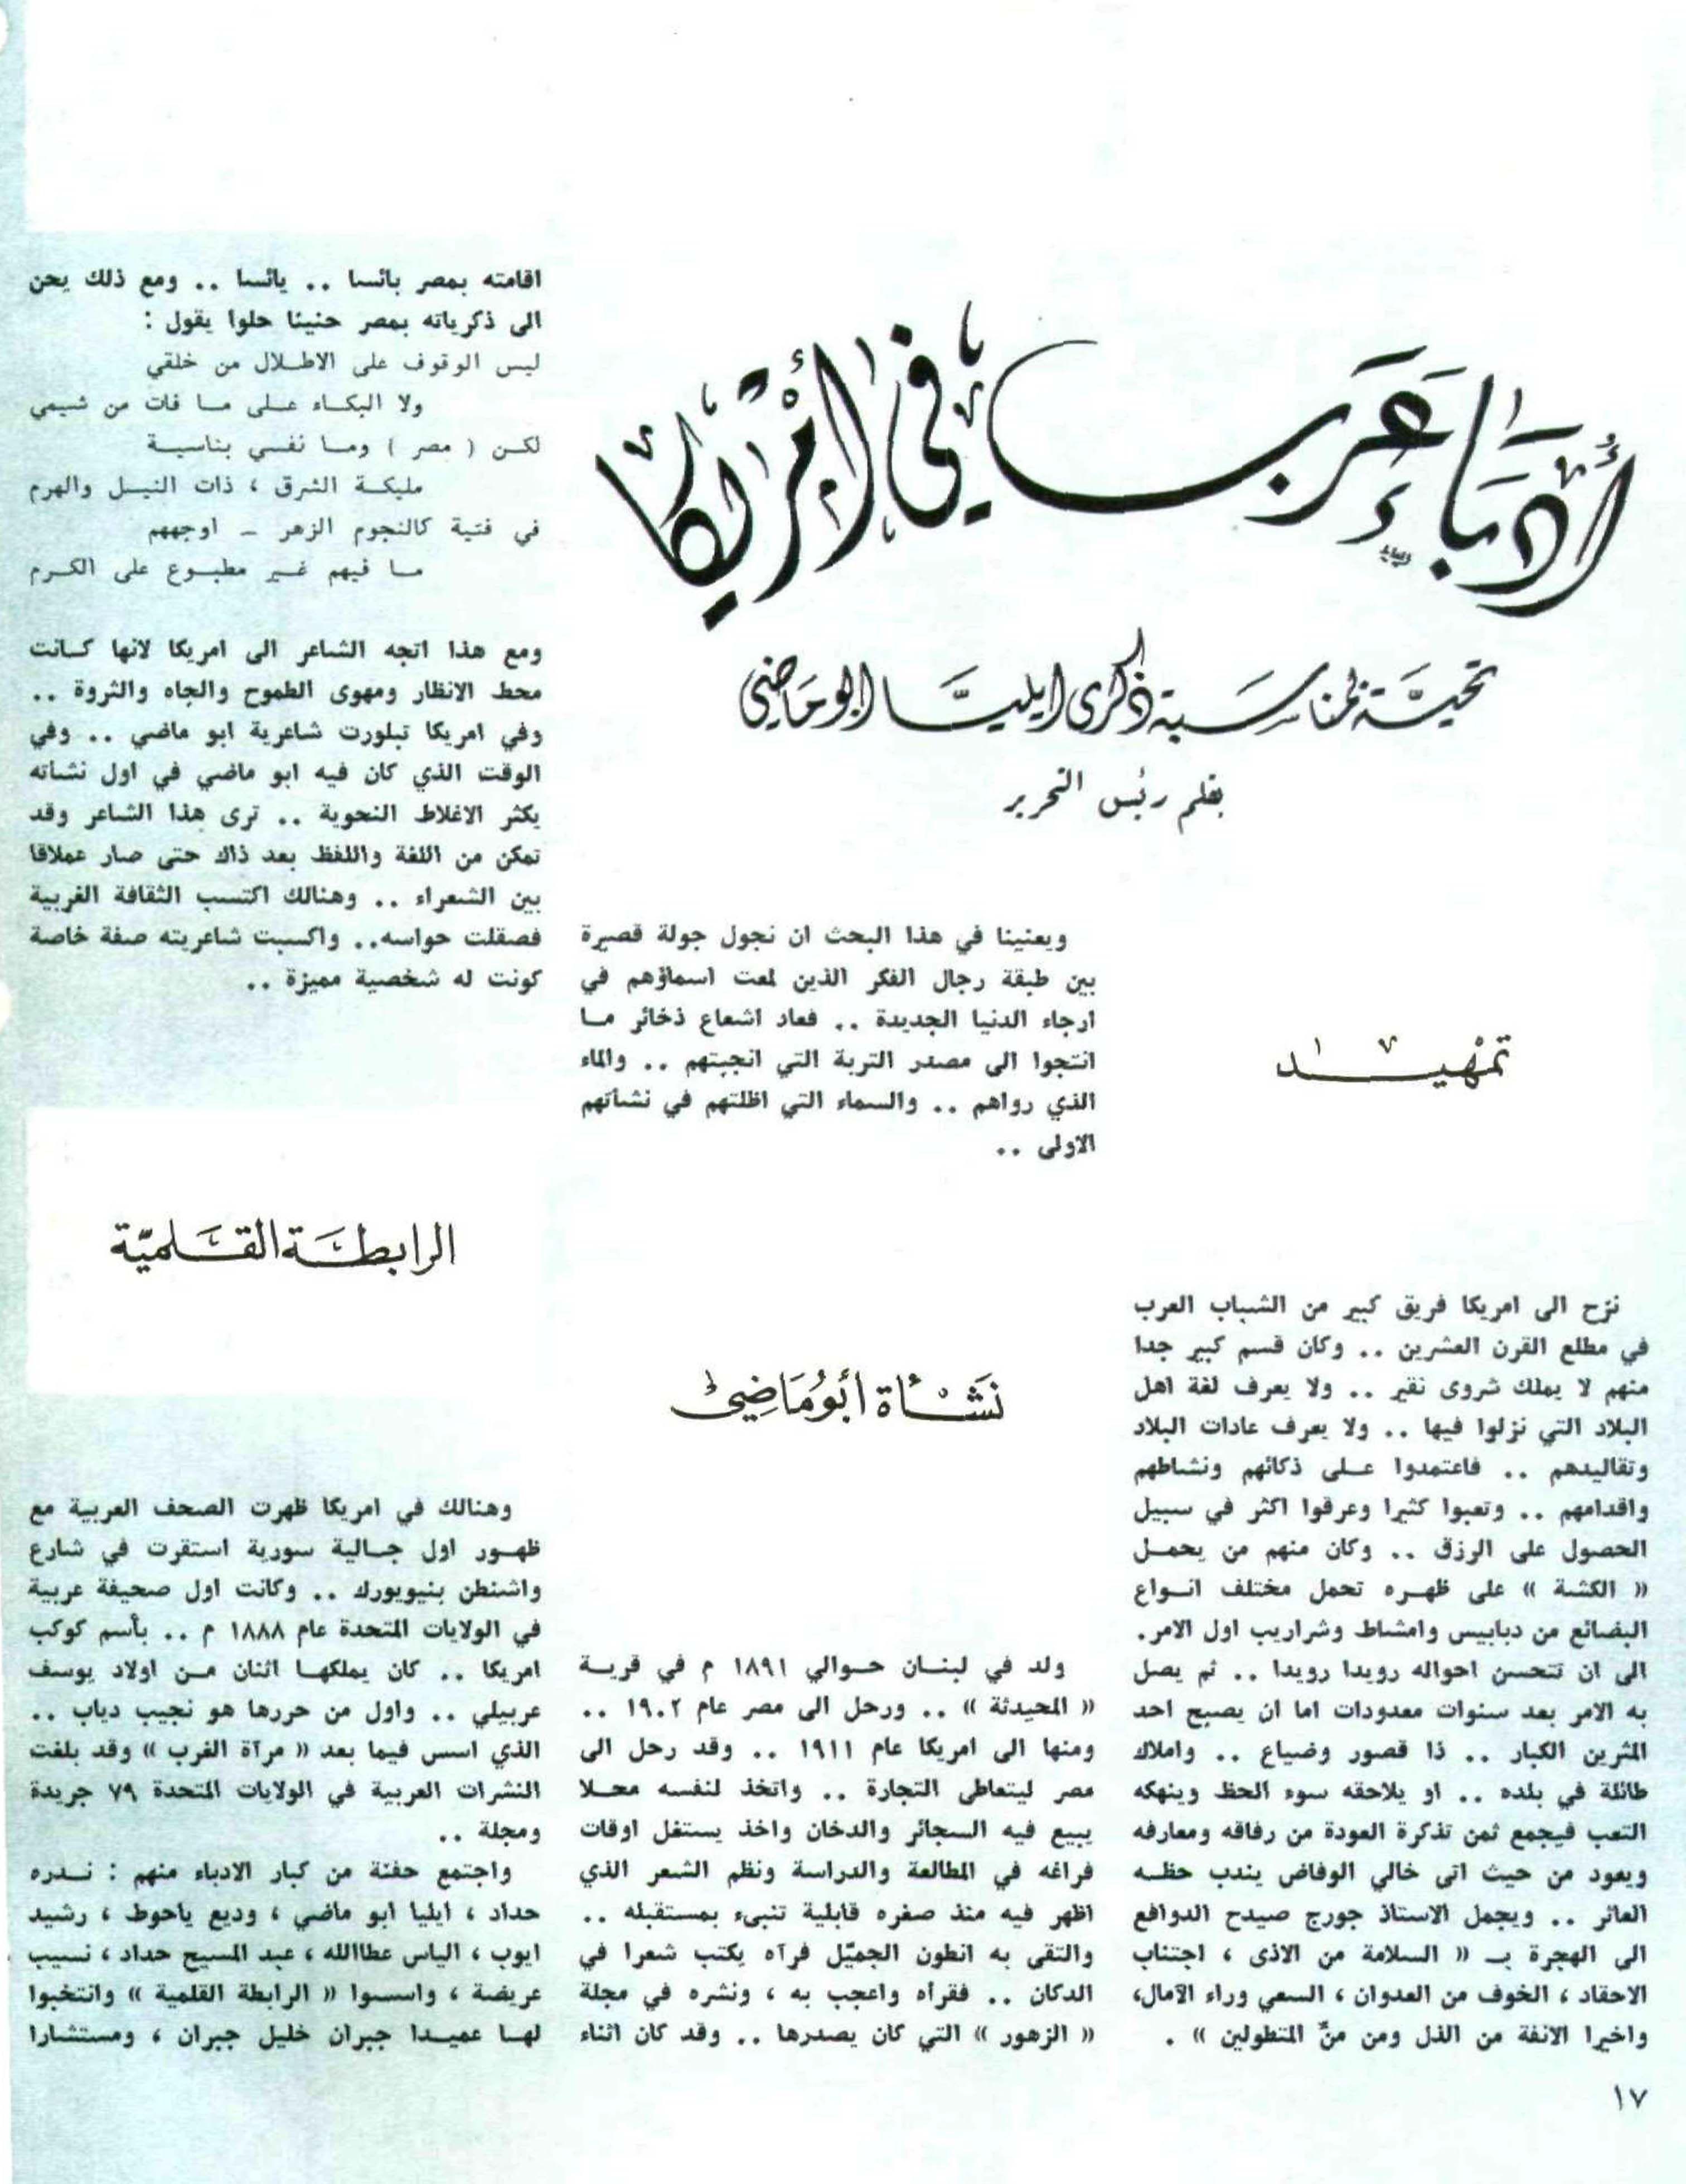 أدباء عرب في امريكا
تحية لمناسبة ذكرى ايليا ابو ماضي
بقلم رئيس التحرير
تمهيد
نزح الى امريكا فريق كبير من الشباب العرب
في مطلع القرن العشرين .. وكان قسم كبير جدا
منهم لا يملك شروى نقير .. ولا يعرف لغة اهل
البلاد التي نزلوا فيها .. ولا يعرف عادات البلاد
وتقاليدهم .. فاعتمدوا على ذكائهم ونشاطهم
واقدامهم .. وتعبوا كثيرا وعرقوا اكثر في سبيل
الحصول على الرزق .. وكان منهم من يحمل
« الكشة » على ظهره تحمل مختلف انواع
البضائع من دبابيس وامشاط وشراريب اول الامر.
الى ان تتحسن احواله رويدا رويدا .. ثم يصل
به الامر بعد سنوات معدودات اما ان يصبح احد
المثرين الكبار .. ذا قصور وضياع .. واملاك
طائلة في بلده .. او يلاحقه سوء الحظ وينهكه
التعب فيجمع ثمن تذكرة العودة من رفاقه ومعارفه
ويعود من حيث اتى خالي الوفاض يندب حظه
العاثر .. ويجمل الاستاذ جورج صيدح الدوافع
الى الهجرة بـ « السلامة من الاذى ، اجتناب
الاحقاد ، الخوف من العدوان ، السعي وراء الآمال،
واخيرا الانفة من الذل ومن منّ المتطولين » .
ويعنينا في هذا البحث ان نجول جولة قصيرة
بين طبقة رجال الفكر الذين لمعت اسماؤهم في
ارجاء الدنيا الجديدة .. فعاد اشعاع ذخائر ما
انتجوا الى مصدر التربة التي انجبتهم .. والماء
الذي رواهم .. والسماء التي اظلتهم في نشأتهم
الاولى ..
نشأة أبو ماضي
ولد في لبنان حوالي ١٨٩١ م في قرية
« المحيدثة » .. ورحل الى مصر عام ١٩٠٢ ..
ومنها الى امريكا عام ١٩١١ .. وقد رحل الى
مصر ليتعاطى التجارة .. واتخذ لنفسه محلا
يبيع فيه السجائر والدخان واخذ يستغل اوقات
فراغه في المطالعة والدراسة ونظم الشعر الذي
اظهر فيه منذ صغره قابلية تنبىء بمستقبله ..
والتقى به انطون الجميّل فرآه يكتب شعرا في
الدكان .. فقرأه واعجب به ، ونشره في مجلة
« الزهور » التي كان يصدرها .. وقد كان اثناء
اقامته بمصر بائسا .. يائسا .. ومع ذلك يحن
الى ذكرياته بمصر حنينا حلوا يقول :
ليس الوقوف على الاطلال من خلقي
ولا البكاء على ما فات من شيمي
لكن ( مصر ) وما نفسي بناسية
مليكة الشرق ، ذات النيل والهرم
في فتية كالنجوم الزهر – اوجههم
ما فيهم غير مطبوع على الكرم
ومع هذا اتجه الشاعر الى امريكا لانها كانت
محط الانظار ومهوى الطموح والجاه والثروة ..
وفي امريكا تبلورت شاعرية ابو ماضي .. وفي
الوقت الذي كان فيه ابو ماضي في اول نشاته
يكثر الاغلاط النحوية .. ترى هذا الشاعر وقد
تمكن من اللغة واللفظ بعد ذاك حتى صار عملاقا
بين الشعراء .. وهنالك اكتسب الثقافة الغربية
فصقلت حواسه.. واكسبت شاعريته صفة خاصة
كونت له شخصية مميزة ..
الرابطة القلمية
وهنالك في امريكا ظهرت الصحف العربية مع
ظهور اول جالية سورية استقرت في شارع
واشنطن بنيويورك .. وكانت اول صحيفة عربية
في الولايات المتحدة عام ١٨٨٨ م .. بأسم كوكب
امريكا .. كان يملكها اثنان من اولاد يوسف
عربيلي .. واول من حررها هو نجيب دياب ..
الذي اسس فيما بعد « مرآة الغرب » وقد بلغت
النشرات العربية في الولايات المتحدة ٧٩ جريدة
ومجلة ..
واجتمع حفنة من كبار الادباء منهم : ندره
حداد ، ايليا ابو ماضي ، وديع ياحوط ، رشيد
ايوب ، الياس عطاالله ، عبد المسيح حداد ، نسيب
عريضة ، واسسوا « الرابطة القلمية » وانتخبوا
لها عميدا جبران خليل جبران ، ومستشارا
١٧